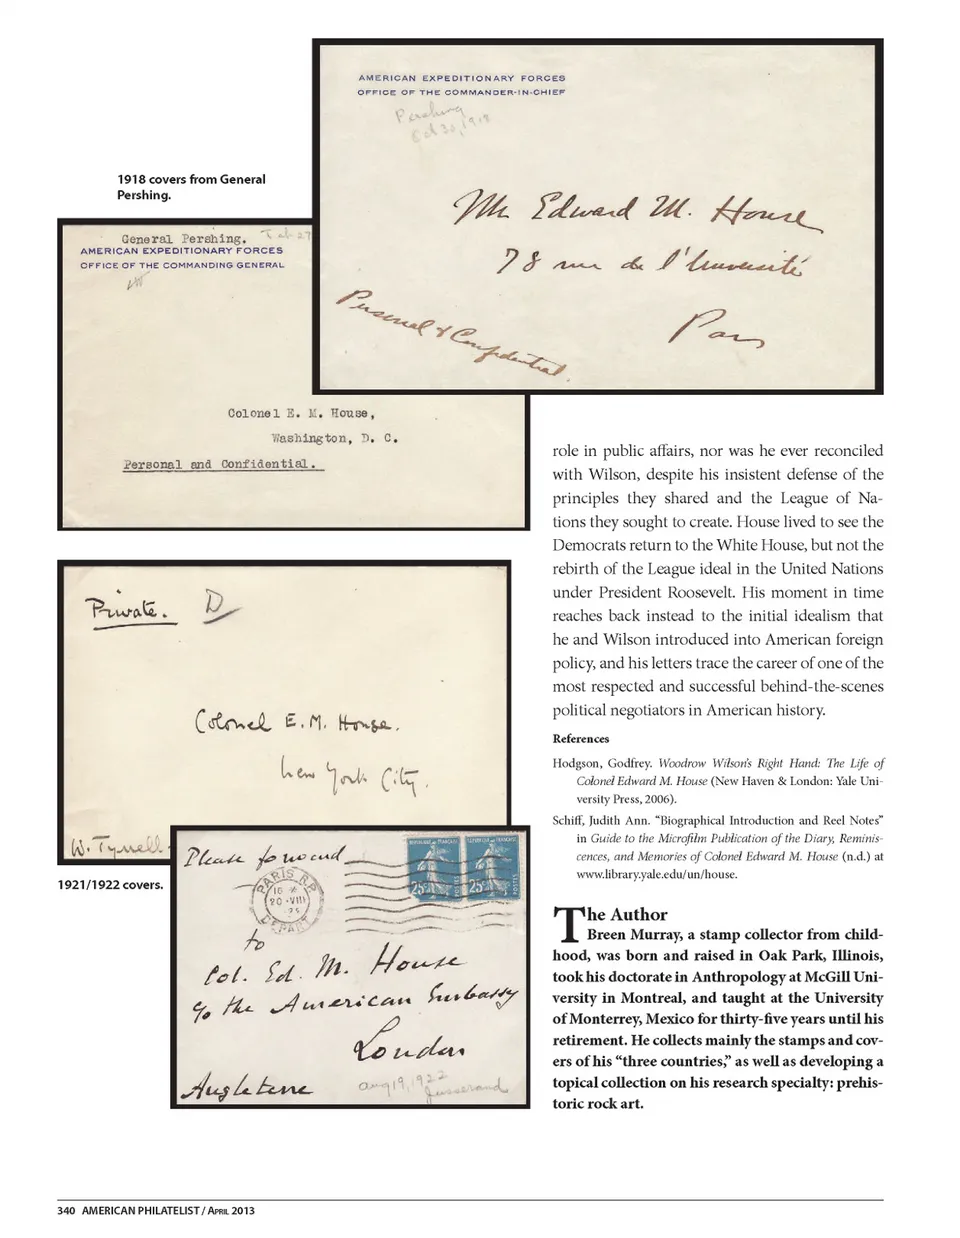 AMERICAN EXPEDITIONARY FORCES
OFFICE OF THE COMMANDER-IN-CHIEF
Pershing
Oct 30, 1918
Mr. Edward M. House
78 rue de l'Université
Paris
Personal & Confidential.
1918 covers from General
Pershing.
General Pershing. Feb 27
AMERICAN EXPEDITIONARY FORCES
OFFICE OF THE COMMANDING GENERAL
Colonel E. M. House,
Washington, D. C.
Personal and Confidential.
Private. D
Colonel E. M. House.
New York City.
W. Tyrrell
1921/1922 covers.
Please forward
PARIS R.P.
20 VIII
DEPART
25c
25c
POSTES
POSTES
to
Col. Ed. M. House
c/o the American Embassy
London
Angleterre
Aug 19, 1922
Jusserand
role in public affairs, nor was he ever reconciled
with Wilson, despite his insistent defense of the
principles they shared and the League of Na-
tions they sought to create. House lived to see the
Democrats return to the White House, but not the
rebirth of the League ideal in the United Nations
under President Roosevelt. His moment in time
reaches back instead to the initial idealism that
he and Wilson introduced into American foreign
policy, and his letters trace the career of one of the
most respected and successful behind-the-scenes
political negotiators in American history.
References
Hodgson, Godfrey. Woodrow Wilson's Right Hand: The Life of
Colonel Edward M. House (New Haven & London: Yale Uni-
versity Press, 2006).
Schiff, Judith Ann. "Biographical Introduction and Reel Notes"
in Guide to the Microfilm Publication of the Diary, Reminis-
cences, and Memories of Colonel Edward M. House (n.d.) at
www.library.yale.edu/un/house.
The Author
Breen Murray, a stamp collector from child-
hood, was born and raised in Oak Park, Illinois,
took his doctorate in Anthropology at McGill Uni-
versity in Montreal, and taught at the University
of Monterrey, Mexico for thirty-five years until his
retirement. He collects mainly the stamps and cov-
ers of his "three countries," as well as developing a
topical collection on his research specialty: prehis-
toric rock art.
340 AMERICAN PHILATELIST / APRIL 2013